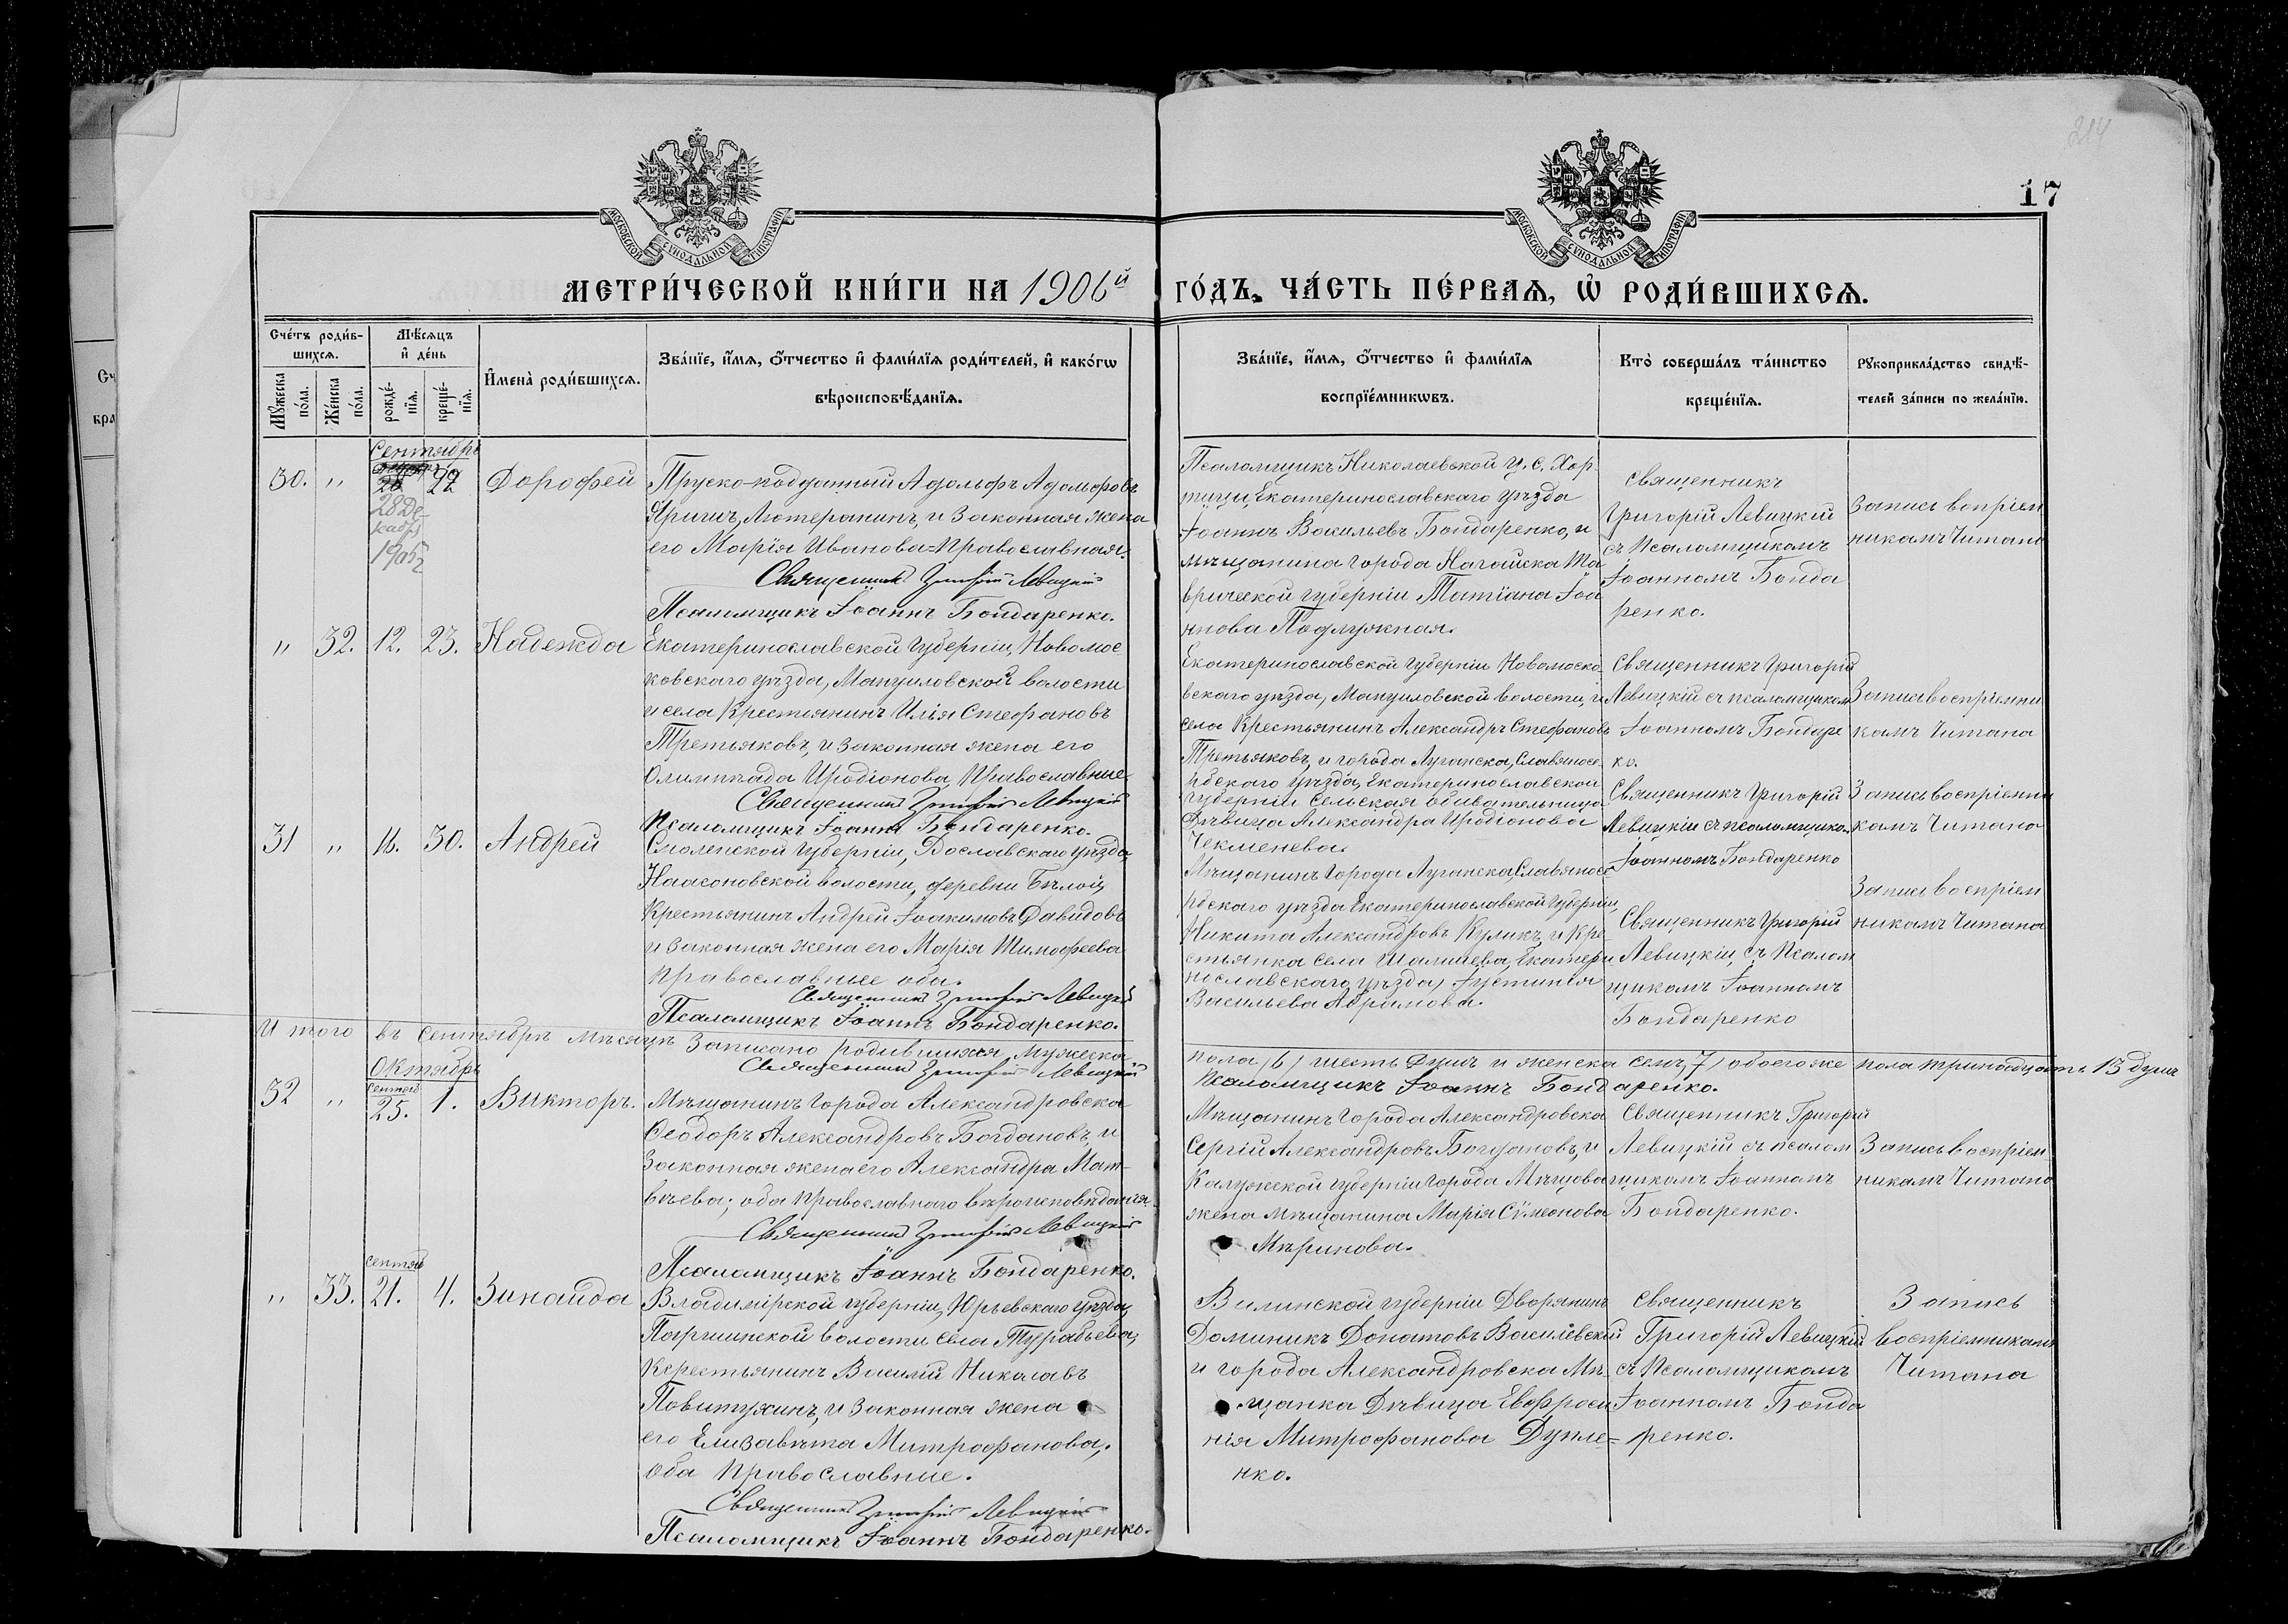 214
17
МОСКОВСКОЙ СѴНОДАЛЬНОЙ ТИПОГРАФІИ
МОСКОВСКОЙ СѴНОДАЛЬНОЙ ТИПОГРАФІИ
МЕТРИ́ЧЕСКОЙ КНИ́ГИ НА 1906й
ГО́ДЪ, ЧА́СТЬ ПЕ́РВАѦ, Ѡ҆ РОДИ́ВШИХСѦ.
Сче́тъ роди́в-
шихсѧ.
Мꙋ́жеска
по́ла.
Же́нска
по́ла.
Мѣ́сѧцъ
и҆ де́нь
рожде́-
нїѧ.
креще́-
нїѧ.
И҆мена̀ роди́вшихсѧ.
Зва́нїе, и҆́мѧ, ѻ҆́тчество и҆ фами́лїѧ роди́телей, и҆ како́гѡ
вѣроисповѣ́данїѧ.
Зва́нїе, и҆́мѧ, ѻ҆́тчество и҆ фами́лїѧ
воспрїе́мникѡвъ.
Кто̀ соверша́лъ та́инство
креще́нїѧ.
Рꙋкоприкла́дство свидѣ́-
телей за́писи по жела́нїю.
Сентябрь
30. „ 28 22 Дорофей
28 де
кабря
1905
Пруско-подданный Адольфъ Адольфовъ
Яришъ, Лютеранинъ, и законная жена
его Марія Иванова=Православная.
Священникъ Григорій Левицкій
Псаломщикъ Іоаннъ Бондаренко.
Псаломщикъ Николаевской ц. с. Хор
тицы, Екатеринославскаго уѣзда
Іоаннъ Васильевъ Бондаренко, и
мѣщанина города Ногайска Та
врической губерніи Татіана Іоа
ннова Подлужная.
Священникъ
Григорій Левицкій
съ Псаломщикомъ
Іоанномъ Бонда
ренко.
Запись воспріем
никамъ Читана
„ 32. 12. 23. Надежда
Екатеринославской губерніи, Новомос
ковскаго уѣзда, Мануиловской волости
и села Крестьянинъ Илья Стефановъ
Третьяковъ, и законная жена его
Олимпіада Иродіонова, Православные
Священникъ Григорій Левицкій
Псаломщикъ Іоаннъ Бондаренко.
Екатеринославской губерніи Новомоско
вскаго уѣзда, Мануиловской волости, и
села Крестьянинъ Александръ Стефановъ
Третьяковъ, и города Луганска, Славяносе
рбскаго уѣзда, Екатеринославской
губерніи Сельская обывательница
Дѣвица Александра Иродіонова
Чекменева.
Священникъ Григорій
Левицкій съ псаломщикомъ
Іоанномъ Бондаре
ко.
Запись воспріемни
камъ Читана
31 „ 16. 30. Андрей
Смоленской губерніи, Рославскаго уѣзда,
волости, деревни Бѣлой,
Крестьянинъ Андрей Іоакимовъ Давидовъ
и законная жена его Марія Тимофеева
православные оба.
Священникъ Григорій Левицкій
Псаломщикъ Іоаннъ Бондаренко.
Священникъ Григорій
Левицкій съ псаломщико.
Іоанномъ Бондаренко
Запись воспріемни
камъ Читана
Мѣщанинъ города Луганска, Славяносе
рбскаго уѣзда Екатеринославской губерніи,
Никита Александровъ Куликъ, и Кре
стьянка села Екатери
нославскаго уѣзда, Іустинія
Васильева Абрамова.
Священникъ Григорій
Левицкій, съ Псалом
щикомъ Іоанномъ
Бондаренко
Запись воспріем
никамъ Читана
Итого въ Сентябрѣ мѣсяцѣ записано родившихся мужеска
пола (6) шесть душъ и женска семь (7) обоего же пола тринадцать 13 душъ
Священникъ Григорій Левицкій
Псаломщикъ Іоаннъ Бондаренко.
Октябрь
сентяб
32 „ 25. 1. Викторъ.
Мѣщанинъ города Александровска
Ѳеодоръ Александровъ Богдановъ, и
законная жена его Александра Мат-
вѣева; оба православнаго вѣроисповѣданія.
Священникъ Григорій Левицкій
Псаломщикъ Іоаннъ Бондаренко.
Мѣщанинъ города Александровска
Сергій Александровъ Богдановъ, и
Калужской губерніи города Мѣщова
жена мѣщанина Марія Сѵмеонова
Мѣринова.
Священникъ Григорій
Левицкій съ псалом
щикомъ Іоанномъ
Бондаренко.
Запись воспріем-
никамъ Читана
сентяб
„ 33. 21. 4. Зинаида
Владимірской губерніи, Юрьевскаго уѣзда,
Паршинской волости села Турабьева,
Крестьянинъ Василій Николаевъ
Повитухинъ, и законная жена
его Елизавета Митрофанова,
оба православные.
Священникъ Григорій Левицкій
Псаломщикъ Іоаннъ Бондаренко.
Виленской губерніи Дворянинъ
Доминикъ Донатовъ Василевскій
и города Александровска Мѣ-
щанка Дѣвица Евфроси
нія Митрофанова Дупле=
нко.
Священникъ
Григорій Левицкій
съ Псаломщикомъ
Іоанномъ Бонда
ренко.
Запись
воспріемникамъ
Читана